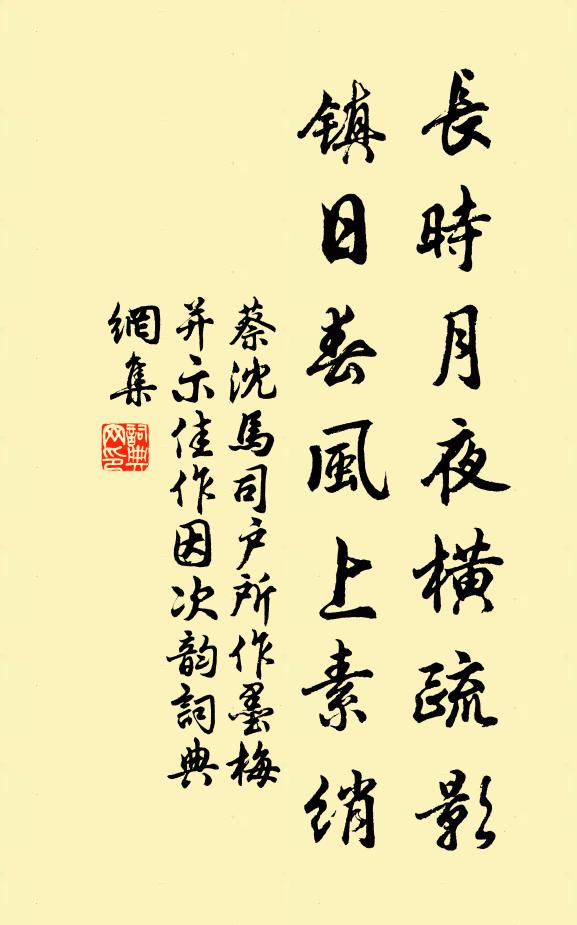 長時月夜橫疏影
鎮日春風上素綃
蔡沈馬司戶所作墨梅
并示佳作因次韵詞典
網集
詞典
网印